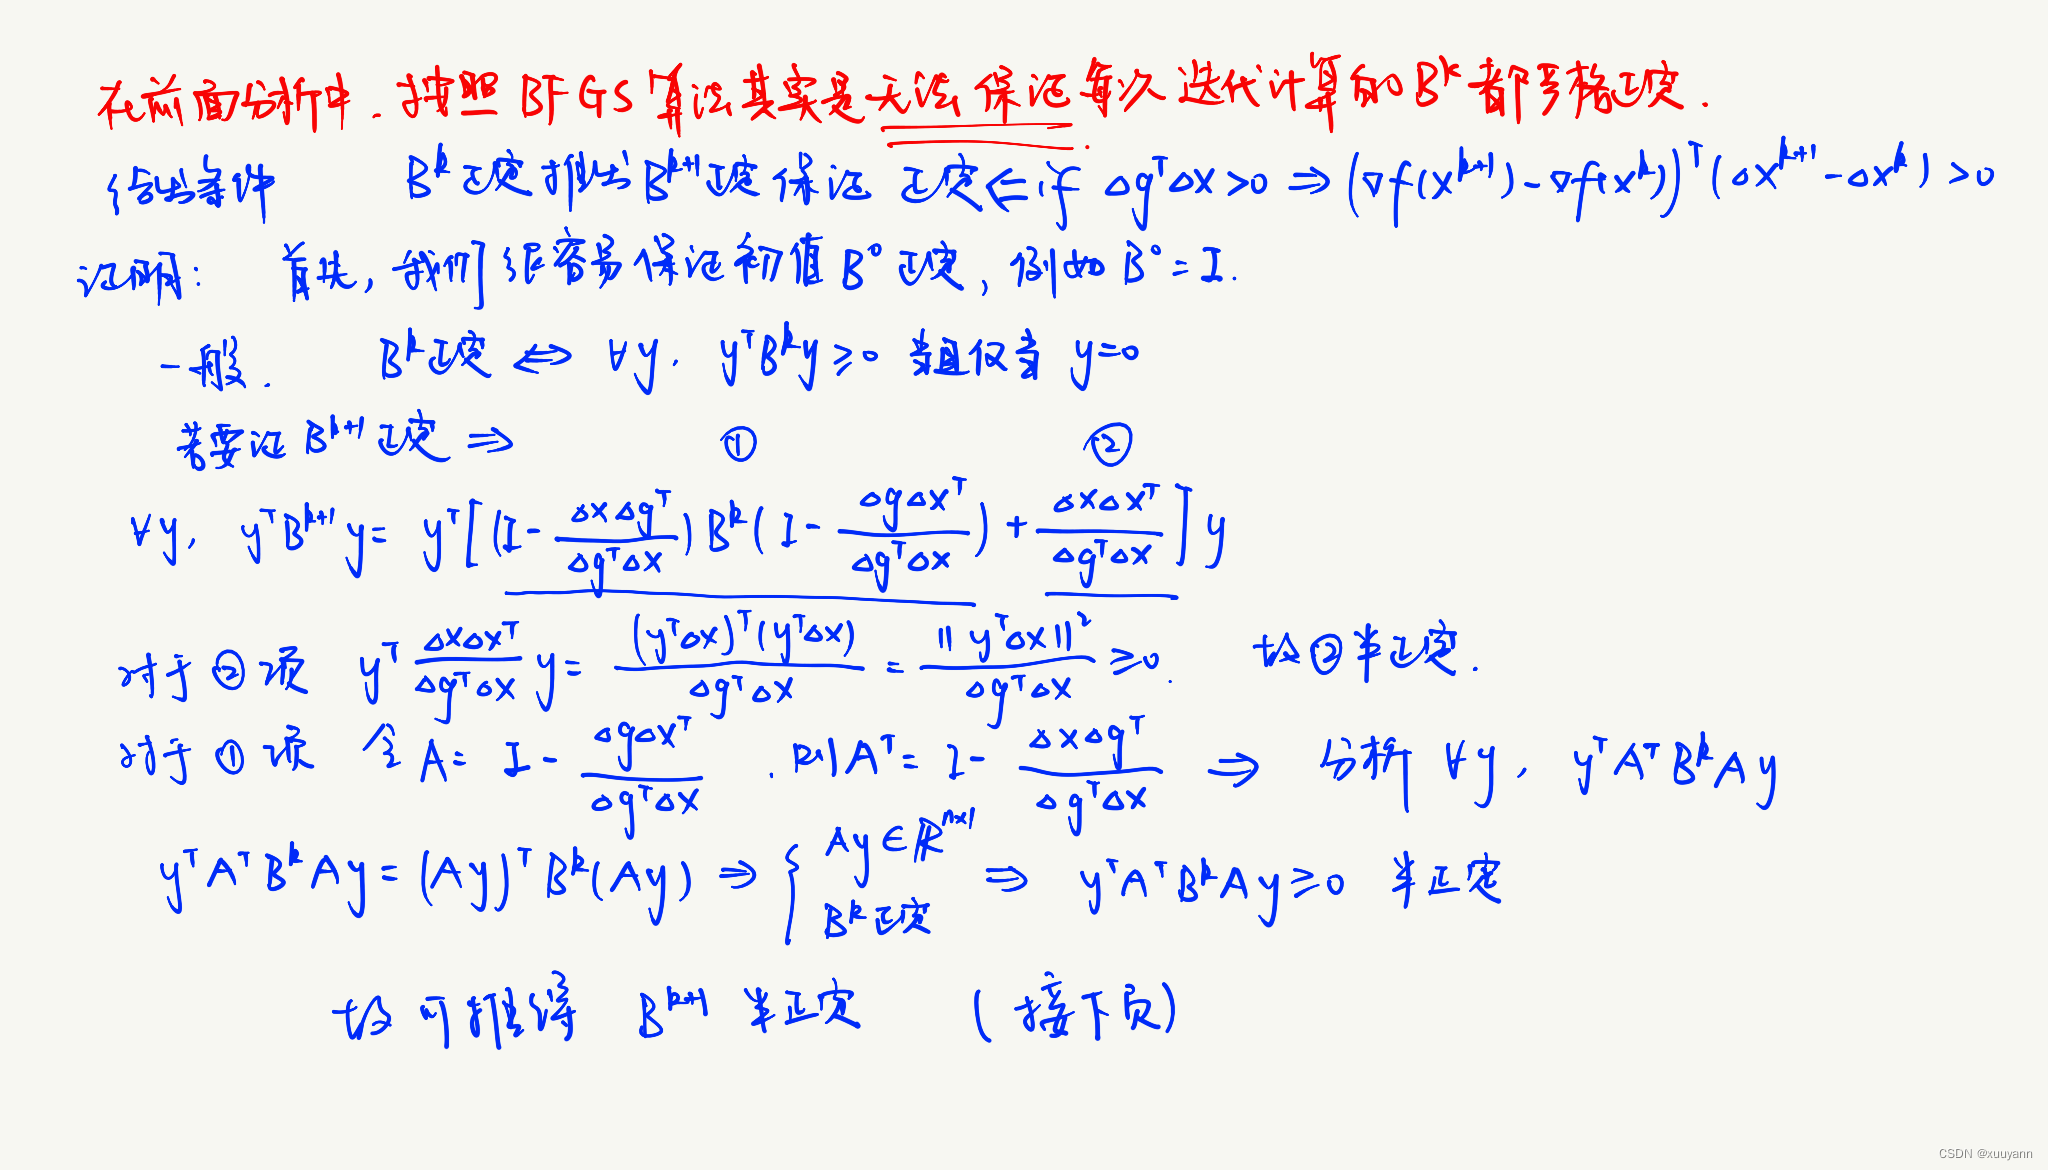 在前面分析中. 按照 BFGS 算法其实是无法保证每次迭代计算的 B^k 都严格正定.
给出条件 B^k 正定推出 B^{k+1} 正定 保证 正定 ⇐ if Δg^TΔx>0 ⇒ (∇f(x^{k+1})-∇f(x^k))^T(Δx^{k+1}-Δx^k)>0
证明: 首先, 我们很容易保证初值 B^0 正定, 例如 B^0=I.
一般. B^k 正定 ⇔ ∀y. y^TB^ky≥0 当且仅当 y=0
若要证 B^{k+1} 正定 ⇒ ① ②
∀y, y^TB^{k+1}y= y^T[(I-\frac{ΔxΔg^T}{Δg^TΔx})B^k(I-\frac{ΔgΔx^T}{Δg^TΔx})+\frac{ΔxΔx^T}{Δg^TΔx}]y
对于②项 y^T\frac{ΔxΔx^T}{Δg^TΔx}y=\frac{(y^TΔx)^T(y^TΔx)}{Δg^TΔx}=\frac{||y^TΔx||^2}{Δg^TΔx}≥0. 故②半正定.
对于①项 令 A= I-\frac{ΔgΔx^T}{Δg^TΔx}. 则 A^T= I-\frac{ΔxΔg^T}{Δg^TΔx} ⇒ 分析 ∀y, y^TA^TB^kAy
y^TA^TB^kAy=(Ay)^TB^k(Ay) ⇒ { Ay∈R^{n×1} B^k 正定 ⇒ y^TA^TB^kAy≥0 半正定
故可推得 B^{k+1} 半正定 (接下页)
CSDN @xuuyann